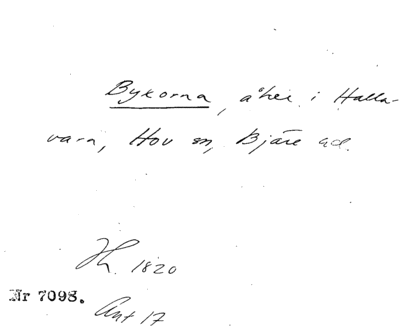 Bykorna, åker i Halla-
vara, Hov sn, Bjäre hd.
Jh. 1820
Nr 7098.
Ant 17